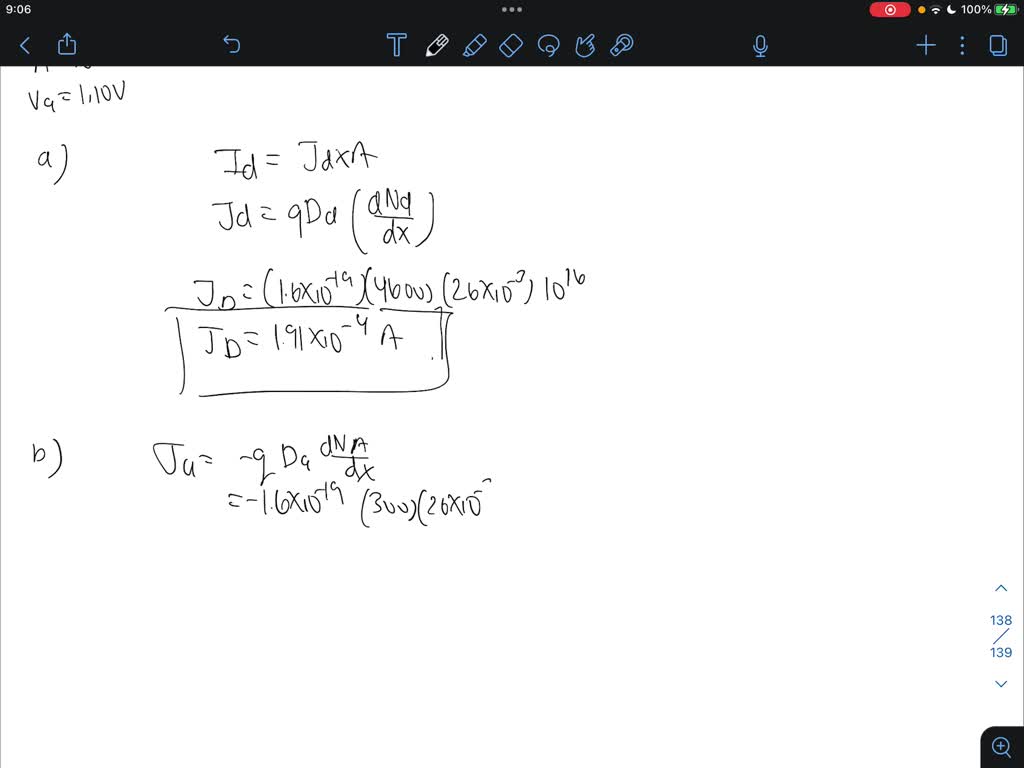 9:06
100%
Va = 1.10V
a)
Id = Jd x A
Jd = qDd (dNd/dx)
JD = (1.6x10^-19)(4600)(26x10^-3) 10^16
JD = 1.91x10^-4 A
b)
Ja = -q Da dNA/dx
= -1.6x10^-19 (300)(26x10^-
138
139